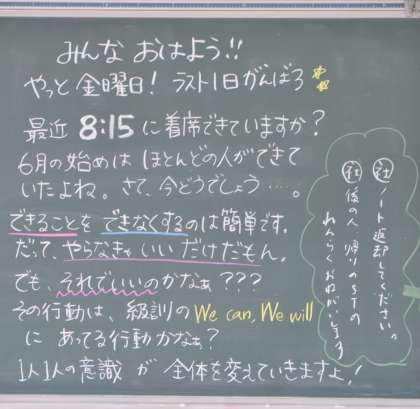 みんな おはよう!!
やっと 金曜日! ラスト1日がんばろ
最近 8:15 に着席できていますか?
6月の始めは ほとんどの人ができて
いたよね。さて、今どうでしょう…。
できることを できなくするのは簡単です。
だって、やらなきゃいいだけだもん。
でも、それでいいのかなぁ???
その行動は、級訓の We can, We will
に あってる行動かなぁ?
1人1人の意識 が 全体を変えていきますよ!
社 ノート返却してください。
社 後の人 帰りのSTの
れんらくおねがいします